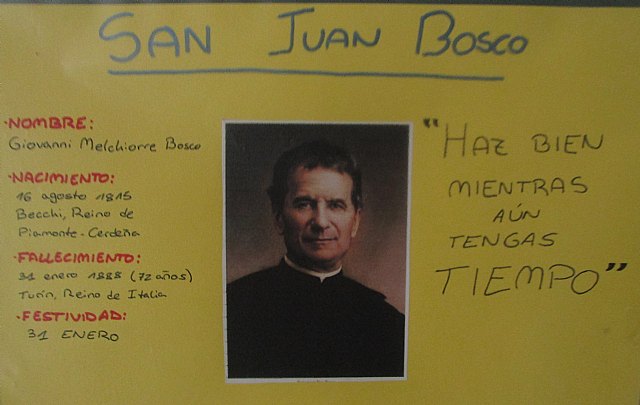 SAN JUAN BOSCO
·NOMBRE:
Giovanni Melchiorre Bosco
·NACIMIENTO:
16 agosto 1815
Becchi, Reino de
Piamonte-Cerdeña
·FALLECIMIENTO:
31 enero 1888 (72 años)
Turín, Reino de Italia
·FESTIVIDAD:
31 ENERO
"HAZ BIEN
MIENTRAS
AÚN
TENGAS
TIEMPO"